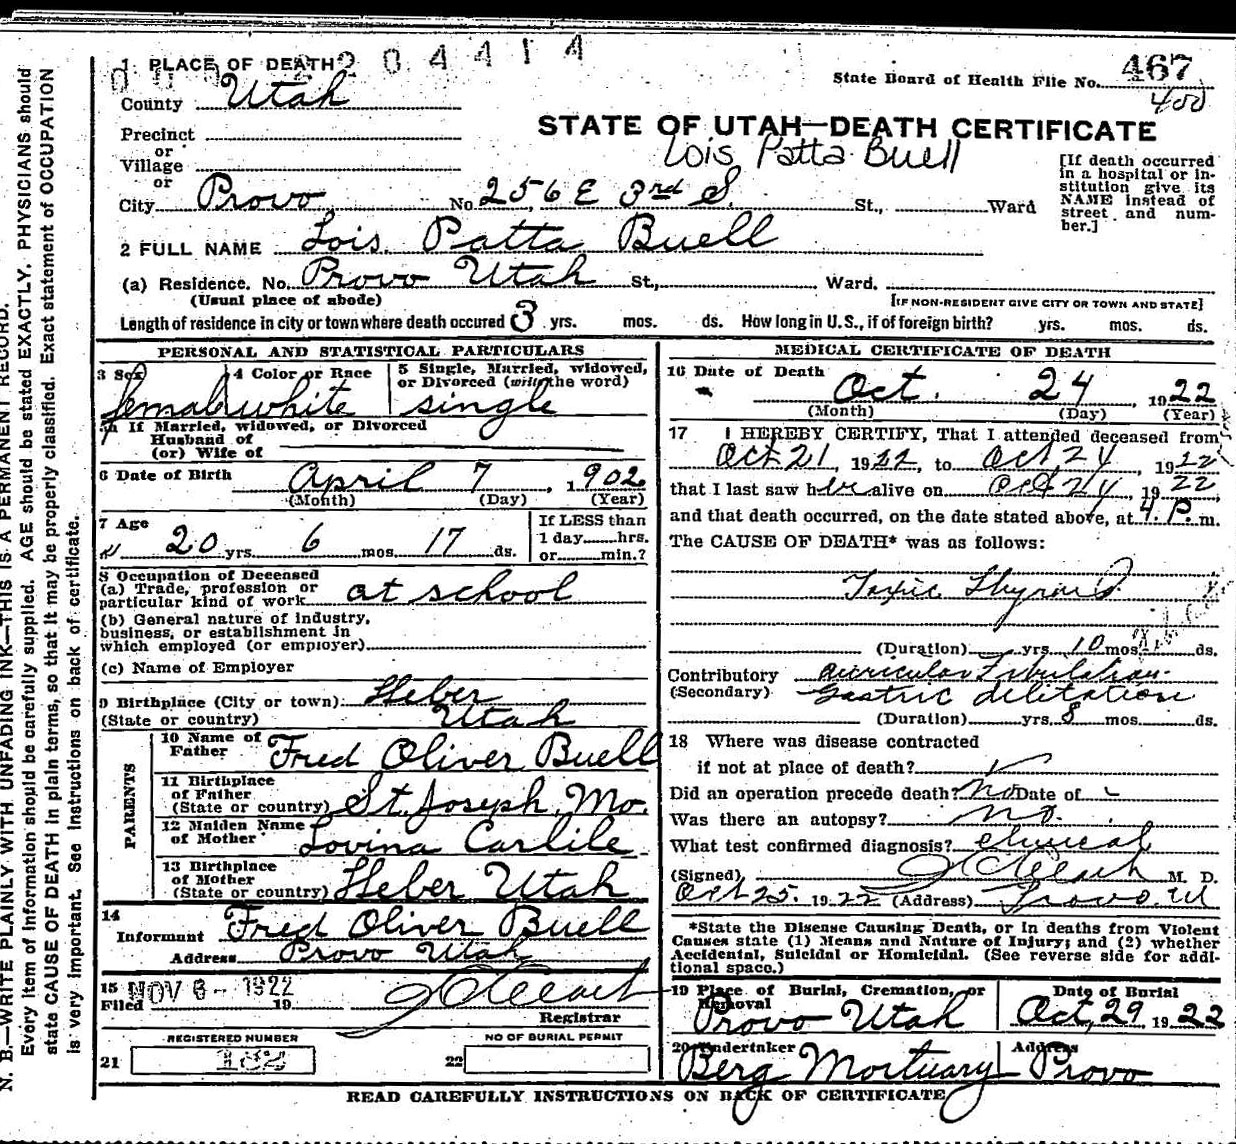 2204414
1 PLACE OF DEATH
County Utah
State Board of Health File No. 467
400
STATE OF UTAH—DEATH CERTIFICATE
Lois Patta Buell
Precinct
or
Village
or
City Provo No. 256 E 3rd S. St., Ward
[If death occurred in a hospital or in-
stitution give its
NAME instead of
street and num-
ber.]
2 FULL NAME Lois Patta Buell
(a) Residence. No. Provo Utah St., Ward.
(Usual place of abode) [IF NON-RESIDENT GIVE CITY OR TOWN AND STATE]
Length of residence in city or town where death occured 3 yrs. mos. ds. How long in U.S., if of foreign birth? yrs. mos. ds.
PERSONAL AND STATISTICAL PARTICULARS
3 Sex 4 Color or Race 5 Single, Married, widowed,
or Divorced (write the word)
female white single
5a If Married, widowed, or Divorced
Husband of
(or) Wife of
6 Date of Birth April 7, 1902
(Month) (Day) (Year)
7 Age 20 yrs. 6 mos. 17 ds.
If LESS than
1 day......hrs.
or......min.?
8 Occupation of Deceased
(a) Trade, profession or
particular kind of work at school
(b) General nature of industry,
business, or establishment in
which employed (or employer)
(c) Name of Employer
9 Birthplace (City or town) Heber
(State or country) Utah
PARENTS
10 Name of
Father Fred Oliver Buell
11 Birthplace
of Father
(State or country) St. Joseph, Mo.
12 Maiden Name
of Mother Lovina Carlile
13 Birthplace
of Mother
(State or country) Heber Utah
14
Informant Fred Oliver Buell
Address Provo Utah
15 NOV 6 - 1922
Filed 19
Registrar
REGISTERED NUMBER NO OF BURIAL PERMIT
21 182 22
MEDICAL CERTIFICATE OF DEATH
16 Date of Death
Oct. 24, 1922
(Month) (Day) (Year)
17 I HEREBY CERTIFY, That I attended deceased from
Oct 21 1922, to Oct 24, 1922
that I last saw her alive on Oct 24, 1922
and that death occurred, on the date stated above, at 4. P. m.
The CAUSE OF DEATH* was as follows:
Toxic Thyroid
(Duration) yrs. 10 mos. ds.
Contributory auricular Fibulation
(Secondary) Gastric dilitation
(Duration) yrs. 8 mos. ds.
18 Where was disease contracted
if not at place of death?
Did an operation precede death? No Date of
Was there an autopsy? no.
What test confirmed diagnosis? clinical
(Signed) M. D.
Oct 25. 1922 (Address) Provo. Ut
*State the Disease Causing Death, or in deaths from Violent
Causes state (1) Means and Nature of Injury; and (2) whether
Accidental, Suicidal or Homicidal. (See reverse side for addi-
tional space.)
19 Place of Burial, Cremation, or Date of Burial
Removal
Provo Utah Oct, 29 1922
20 Undertaker Address
Berg Mortuary Provo
READ CAREFULLY INSTRUCTIONS ON BACK OF CERTIFICATE
N. B.—WRITE PLAINLY WITH UNFADING INK—THIS IS A PERMANENT RECORD.
Every item of information should be carefully supplied. AGE should be stated EXACTLY. PHYSICIANS should
state CAUSE OF DEATH in plain terms, so that it may be properly classified. Exact statement of OCCUPATION
is very important. See instructions on back of certificate.